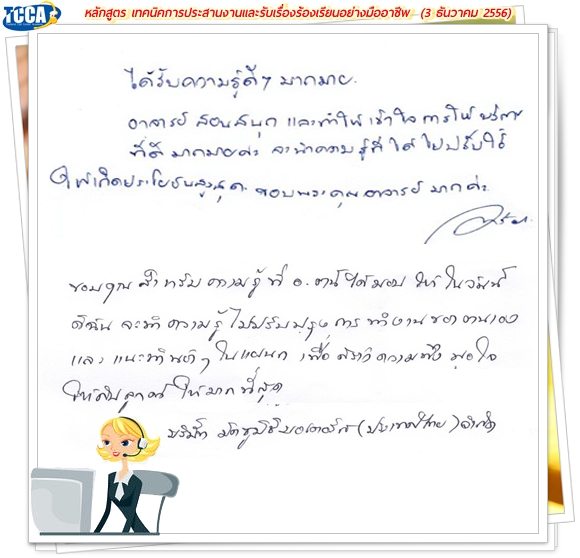 TCCA
หลักสูตร เทคนิคการประสานงานและรับเรื่องร้องเรียนอย่างมืออาชีพ (3 ธันวาคม 2556)
ได้รับความรู้ดีๆ มากมาย.
อาจารย์ สอนสนุก และทำให้ เข้าใจ การให้ บริการ
ที่ดี มากมายค่ะ จะนำความรู้ที่ได้ ไปปรับใช้
ให้เกิดประโยชน์สูงสุด ขอบพระคุณ อาจารย์ มากค่ะ
ขอบคุณ สำหรับ ความรู้ ที่ อ. ได้มอบ ให้ ในวันนี้
ดิฉัน จะนำ ความรู้ ไปปรับปรุง การ ทำงาน ของตนเอง
และ แนะนำ ในแผนก เพื่อ ความพึงพอใจ
ให้กับลูกค้า ให้มากที่สุด
บริษัท มิตซูบิชิ มอเตอร์ส (ประเทศไทย) จำกัด